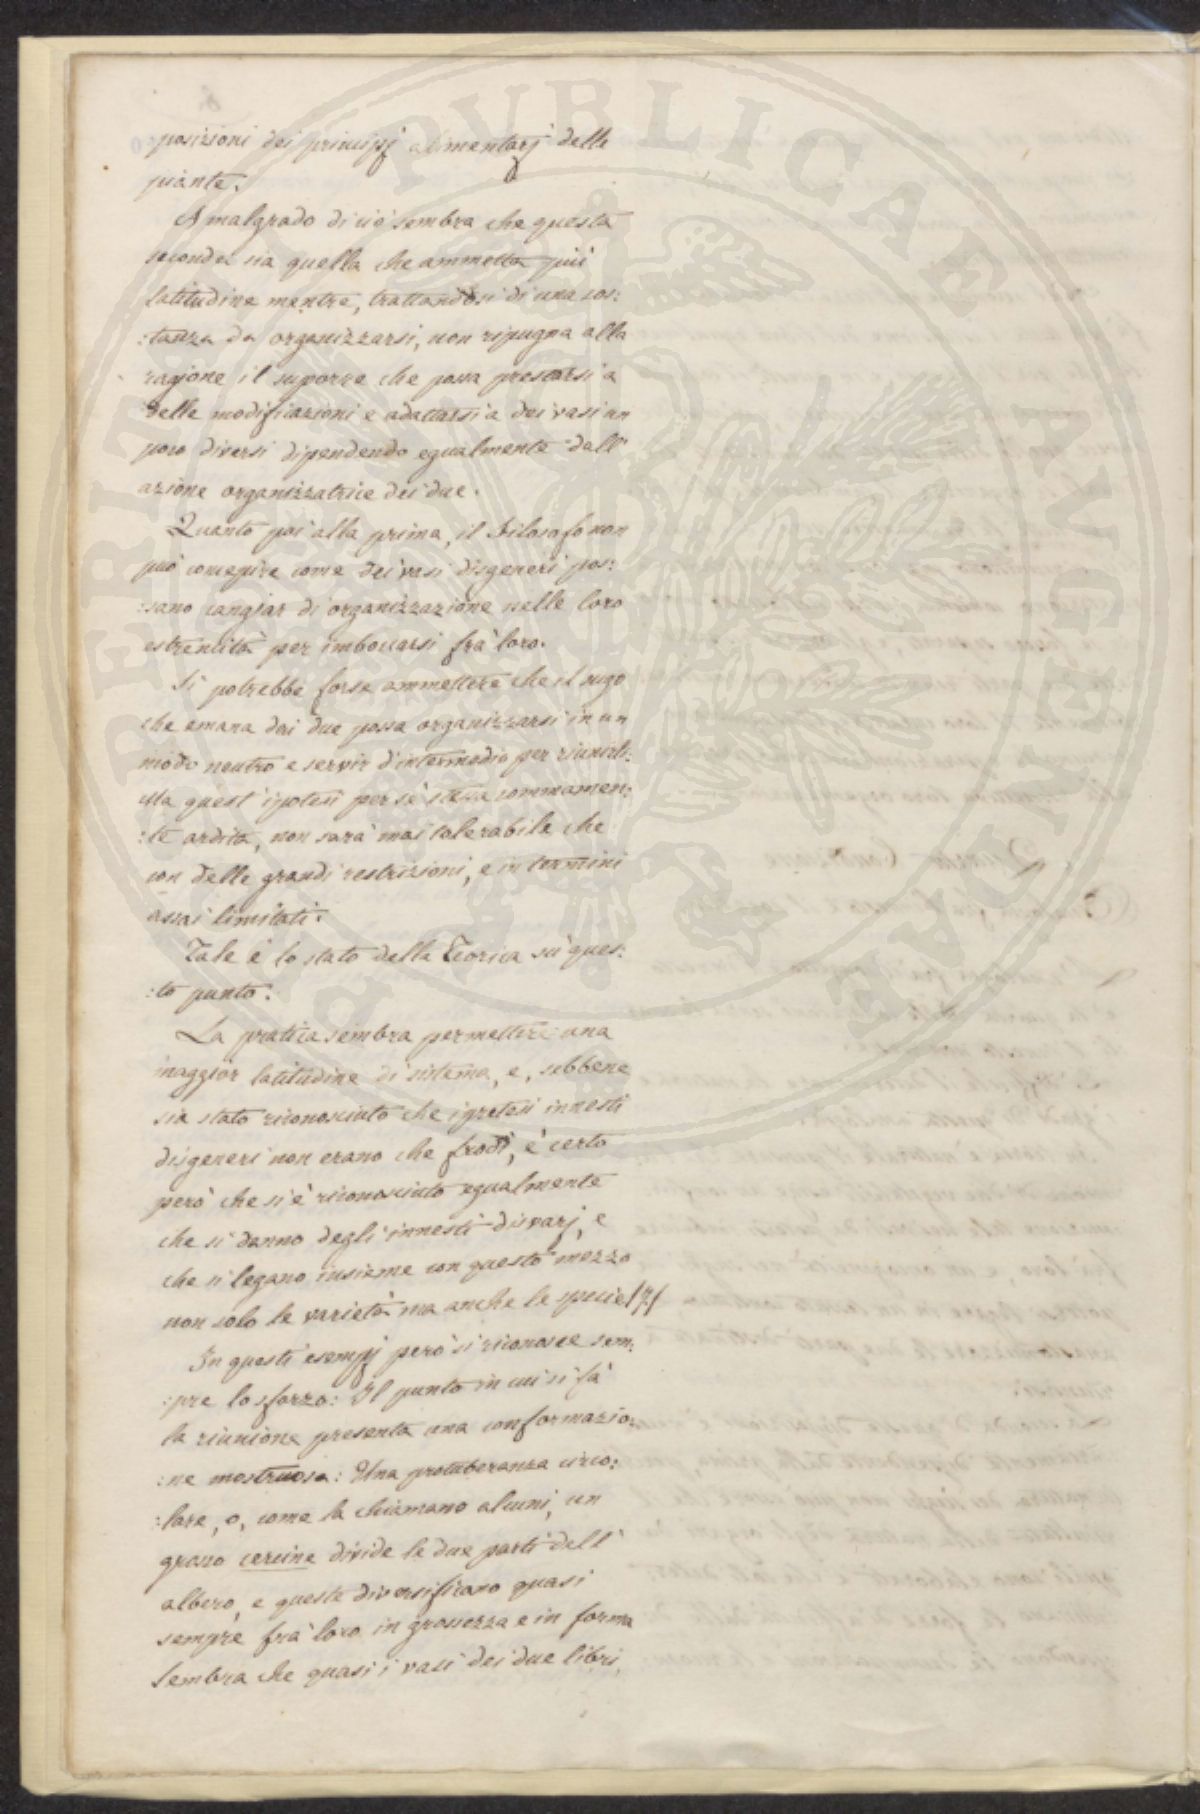 posizioni dei principj alimentarj delle
piante.
A malgrado di ciò sembra che questa
seconda sia quella che ammetta più
latitudine mentre, trattandosi di una sos:
:tanza da organizzarsi, non ripugna alla
ragione il suporre che possa prestarsi a
delle modificazioni e adattarsi a dei vasi un
poco diversi dipendendo egualmente dall'
azione organizzatrice dei due.
Quanto poi alla prima, il Filosofo non
può concepire come dei vasi disgeneri pos:
:sano cangiar di organizzazione nelle loro
estremità per imboccarsi frà loro.
Si potrebbe forse ammettere che il sugo
che emana dai due possa organizzarsi in un
modo neutro e servir d'intermedio per riunirli:
Ma quest'ipotesi per sè stessa sommamen:
:te ardita, non sarà mai tolerabile che
con delle grandi restrizioni, e in termini
assai limitati.
Tale è lo stato della Teorica sù ques:
:to punto.
La pratica sembra permettere una
maggior latitudine di sistema, e, sebbene
sia stato riconosciuto che i pretesi innesti
disgeneri non erano che frodi, è certo
però che si è riconosciuto egualmente
che si danno degli innesti disvarj, e
che si legano insieme con questo mezzo
non solo le varietà ma anche le specie (7)
In questi esempj però si riconosce sem:
:pre lo sforzo: Il punto in cui si fà
la riunione presenta una conformazio:
:ne mostruosa: Una protuberanza circo:
:lare, o, come la chiamano alcuni, un
grosso cercine divide le due parti dell'
albero, e queste diversificano quasi
sempre frà loro in grossezza e in forma
Sembra che quasi i vasi dei due libri,
PUBLICAE
AUGENDAE
PROSPERITATI